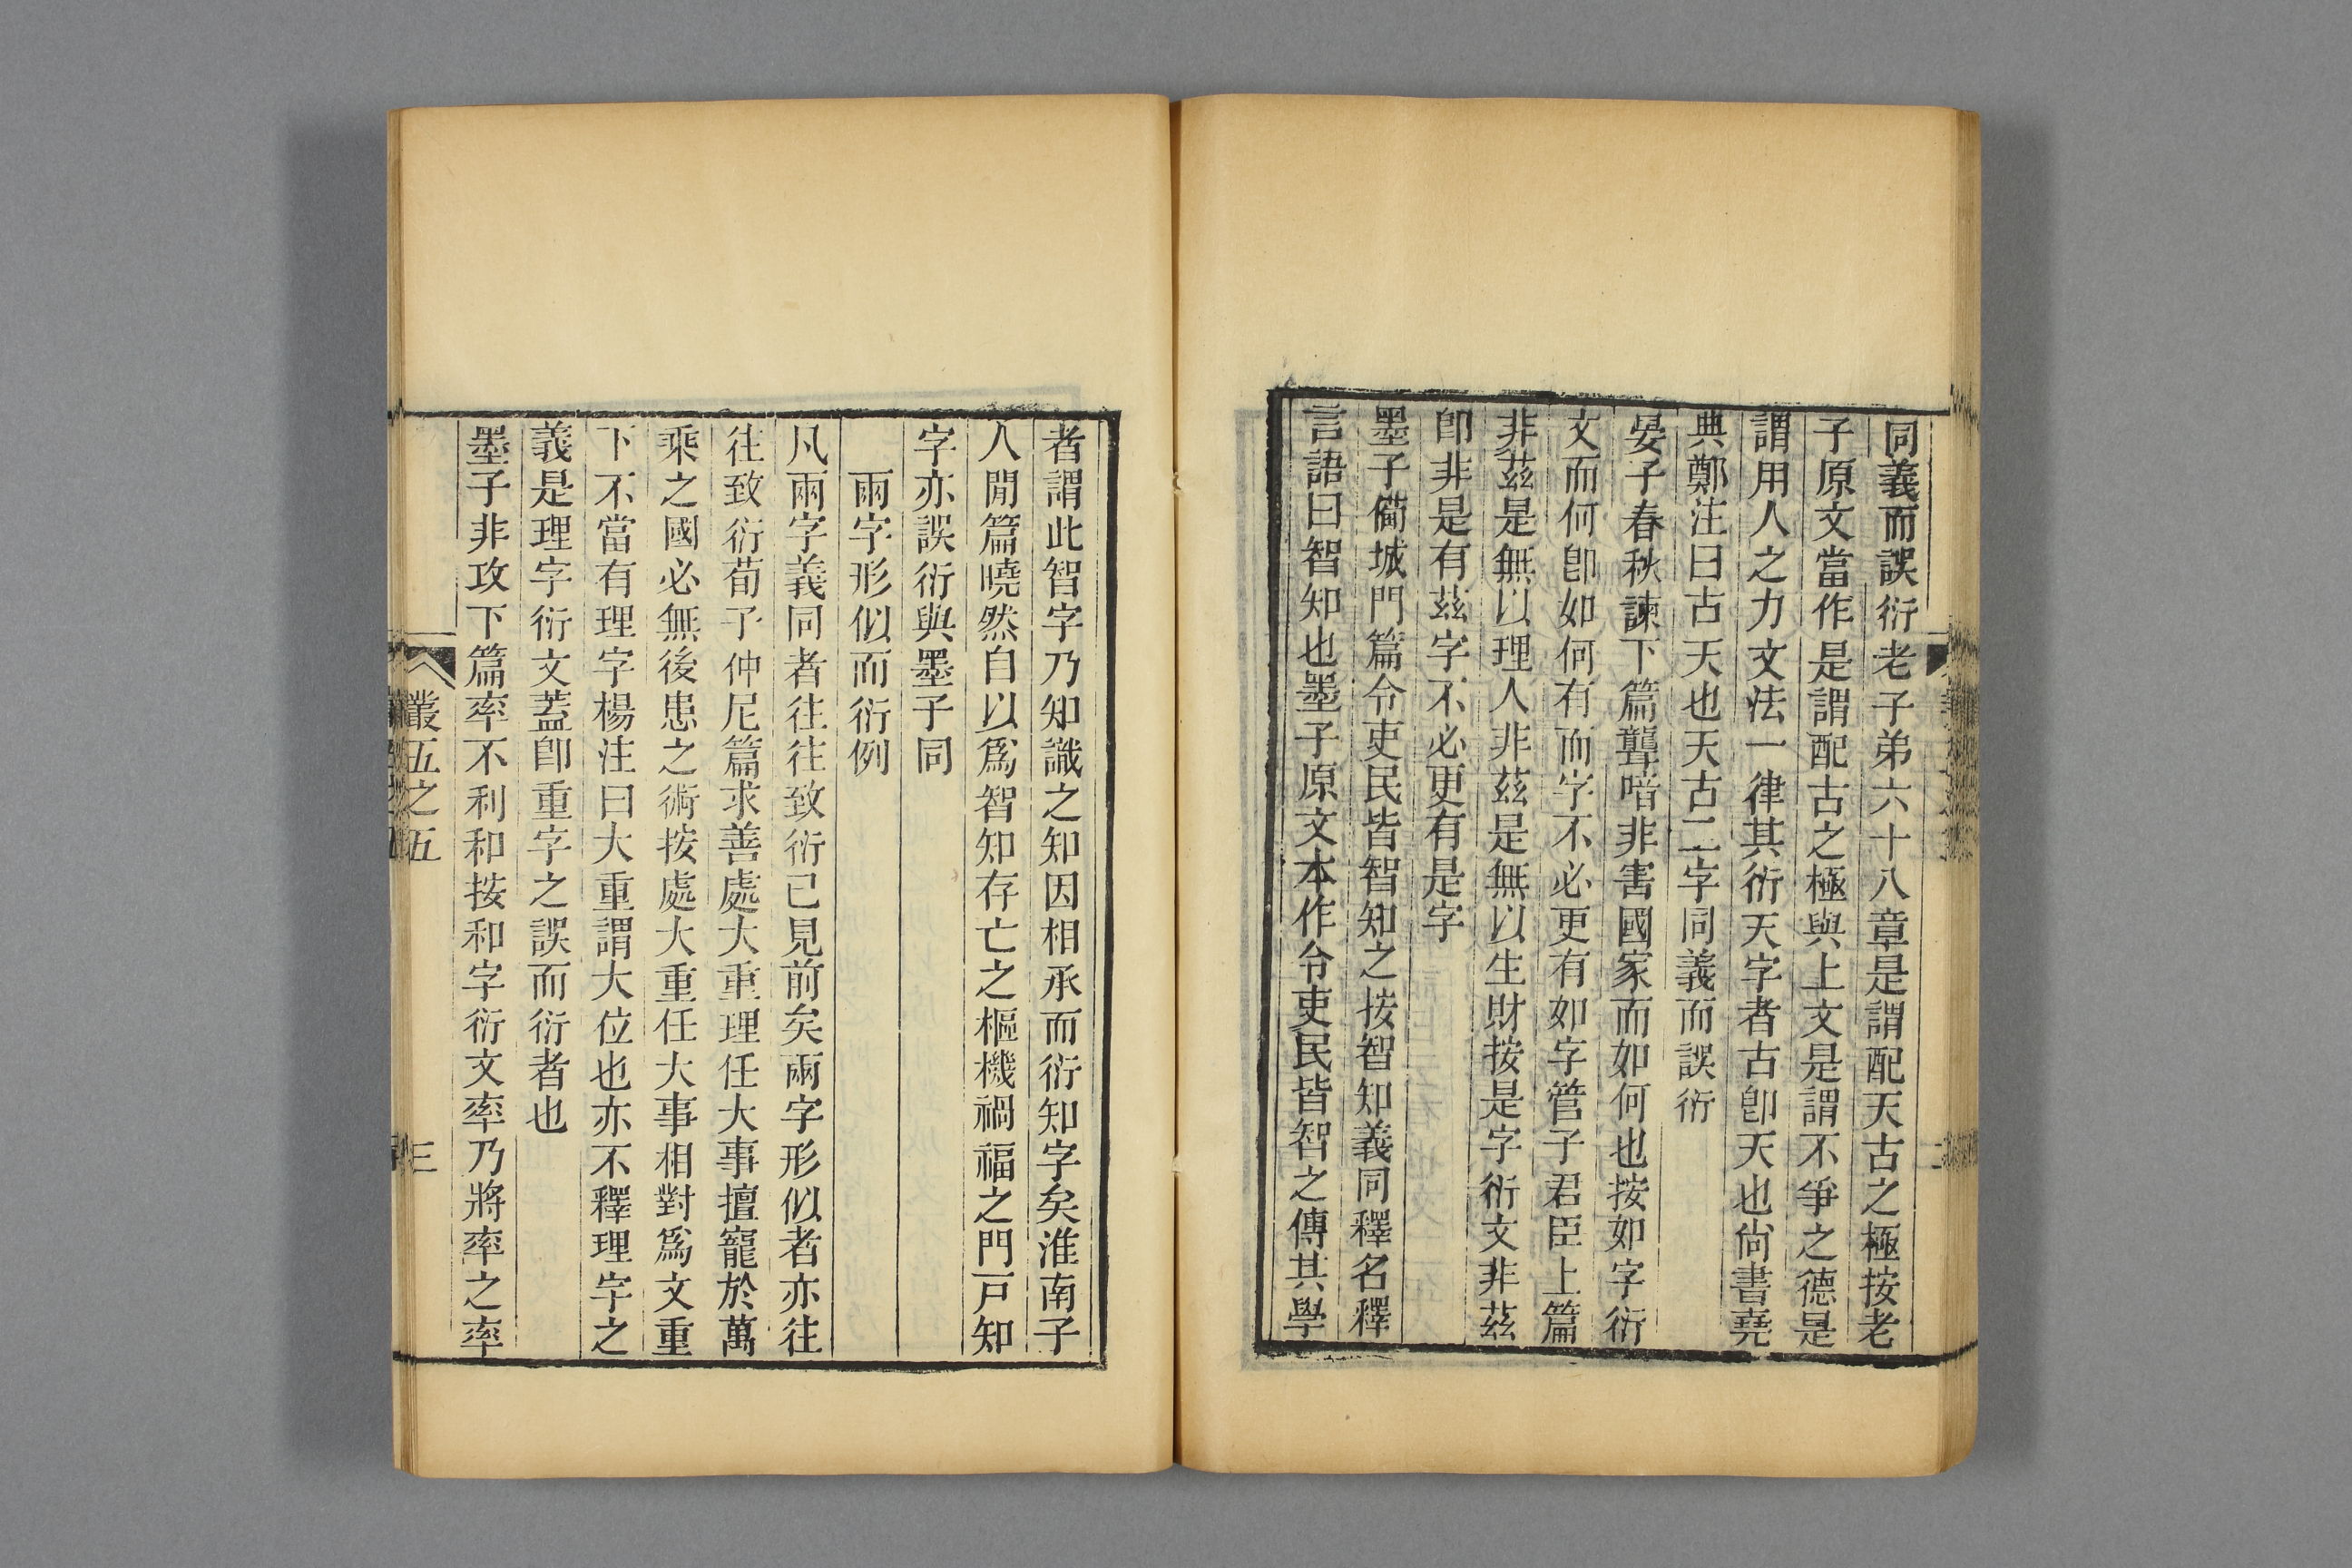 同義而誤衍老子弟六十八章是謂配天古之極按老
子原文當作是謂配古之極與上文是謂不爭之德是
謂用人之力文法一律其衍天字者古卽天也尙書堯
典鄭注曰古天也天古二字同義而誤衍
晏子春秋諫下篇聾喑非害國家而如何也按如字衍
文而何卽如何有而字不必更有如字管子君臣上篇
非茲是無以理人非茲是無以生財按是字衍文非茲
卽非是有茲字不必更有是字
墨子備城門篇令吏民皆智知之按智知義同釋名釋
言語曰智知也墨子原文本作令吏民皆智之傳其學
者謂此智字乃知識之知因相承而衍知字矣淮南子
人閒篇曉然自以爲智知存亡之樞機禍福之門戸知
字亦誤衍與墨子同
兩字形似而衍例
凡兩字義同者往往致衍已見前矣兩字形似者亦往
往致衍荀子仲尼篇求善處大重理任大事擅寵於萬
乘之國必無後患之術按處大重任大事相對爲文重
下不當有理字楊注曰大重謂大位也亦不釋理字之
義是理字衍文蓋卽重字之誤而衍者也
墨子非攻下篇率不利和按和字衍文率乃將率之率
叢五之五
三